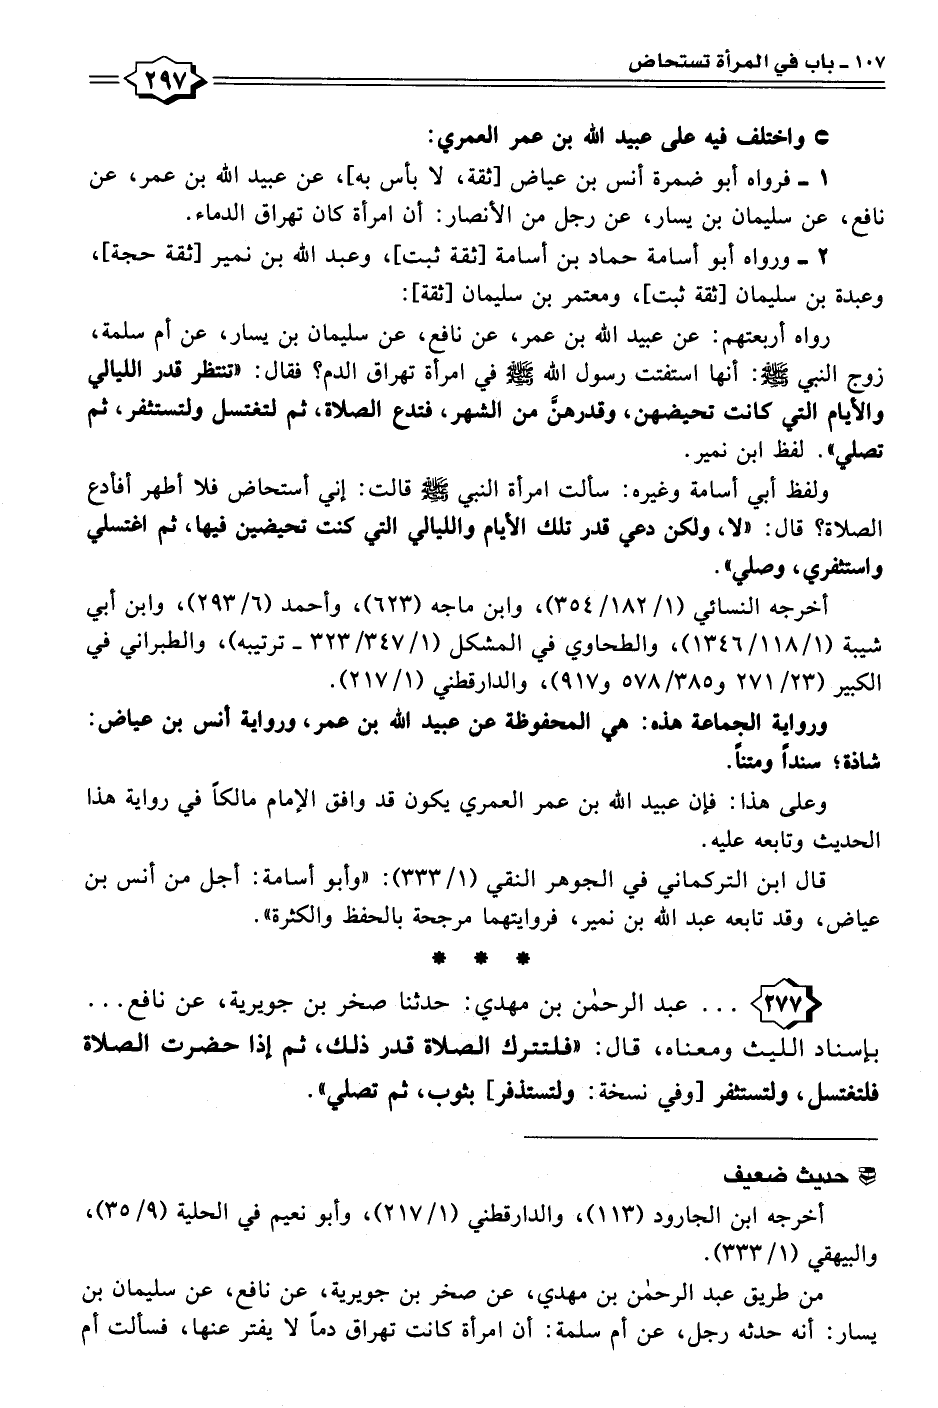 ١٠٧ - باب في المرأة تستحاض
٢٩٧
واختلف فيه على عبيد الله بن عمر العمري:
١ - فرواه أبو ضمرة أنس بن عياض [ثقة، لا بأس به]، عن عبيد الله بن عمر، عن
نافع، عن سليمان بن يسار، عن رجل من الأنصار: أن امرأة كان تهراق الدماء.
٢ - ورواه أبو أسامة حماد بن أسامة [ثقة ثبت]، وعبد الله بن نمير [ثقة حجة]،
وعبدة بن سليمان [ثقة ثبت]، ومعتمر بن سليمان [ثقة]:
رواه أربعتهم: عن عبيد الله بن عمر، عن نافع، عن سليمان بن يسار، عن أم سلمة،
زوج النبي ﷺ: أنها استفتت رسول الله ﷺ في امرأة تهراق الدم؟ فقال: «تنتظر قدر الليالي
والأيام التي كانت تحيضهن، وقدرهنَّ من الشهر، فتدع الصلاة، ثم لتغتسل ولتستثفر، ثم
تصلي». لفظ ابن نمير.
ولفظ أبي أسامة وغيره: سألت امرأة النبي ﷺ قالت: إني أستحاض فلا أطهر أفأدع
الصلاة؟ قال: «لا، ولكن دعي قدر تلك الأيام والليالي التي كنت تحيضين فيها، ثم اغتسلي
واستثفري، وصلي».
أخرجه النسائي (١/ ١٨٢/ ٣٥٤)، وابن ماجه (٦٢٣)، وأحمد (٦/ ٢٩٣)، وابن أبي
شيبة (١/ ١١٨/ ١٣٤٦)، والطحاوي في المشكل (١/ ٣٤٧/ ٣٢٣ - ترتيبه)، والطبراني في
الكبير (٢٣/ ٢٧١ و٣٨٥/ ٥٧٨ و٩١٧)، والدارقطني (١/ ٢١٧).
ورواية الجماعة هذه: هي المحفوظة عن عبيد الله بن عمر، ورواية أنس بن عياض:
شاذة؛ سنداً ومتناً.
وعلى هذا: فإن عبيد الله بن عمر العمري يكون قد وافق الإمام مالكاً في رواية هذا
الحديث وتابعه عليه.
قال ابن التركماني في الجوهر النقي (١/ ٣٣٣): «وأبو أسامة: أجل من أنس بن
عياض، وقد تابعه عبد الله بن نمير، فروايتهما مرجحة بالحفظ والكثرة».
* * *
٢٧٧ ... عبد الرحمٰن بن مهدي: حدثنا صخر بن جويرية، عن نافع...
بإسناد الليث ومعناه، قال: «فلتترك الصلاة قدر ذلك، ثم إذا حضرت الصلاة
فلتغتسل، ولتستثفر [وفي نسخة: ولتستذفر] بثوب، ثم تصلي».
حديث ضعيف
أخرجه ابن الجارود (١١٣)، والدارقطني (١/ ٢١٧)، وأبو نعيم في الحلية (٩/ ٣٥)،
والبيهقي (١/ ٣٣٣).
من طريق عبد الرحمٰن بن مهدي، عن صخر بن جويرية، عن نافع، عن سليمان بن
يسار: أنه حدثه رجل، عن أم سلمة: أن امرأة كانت تهراق دماً لا يفتر عنها، فسألت أم